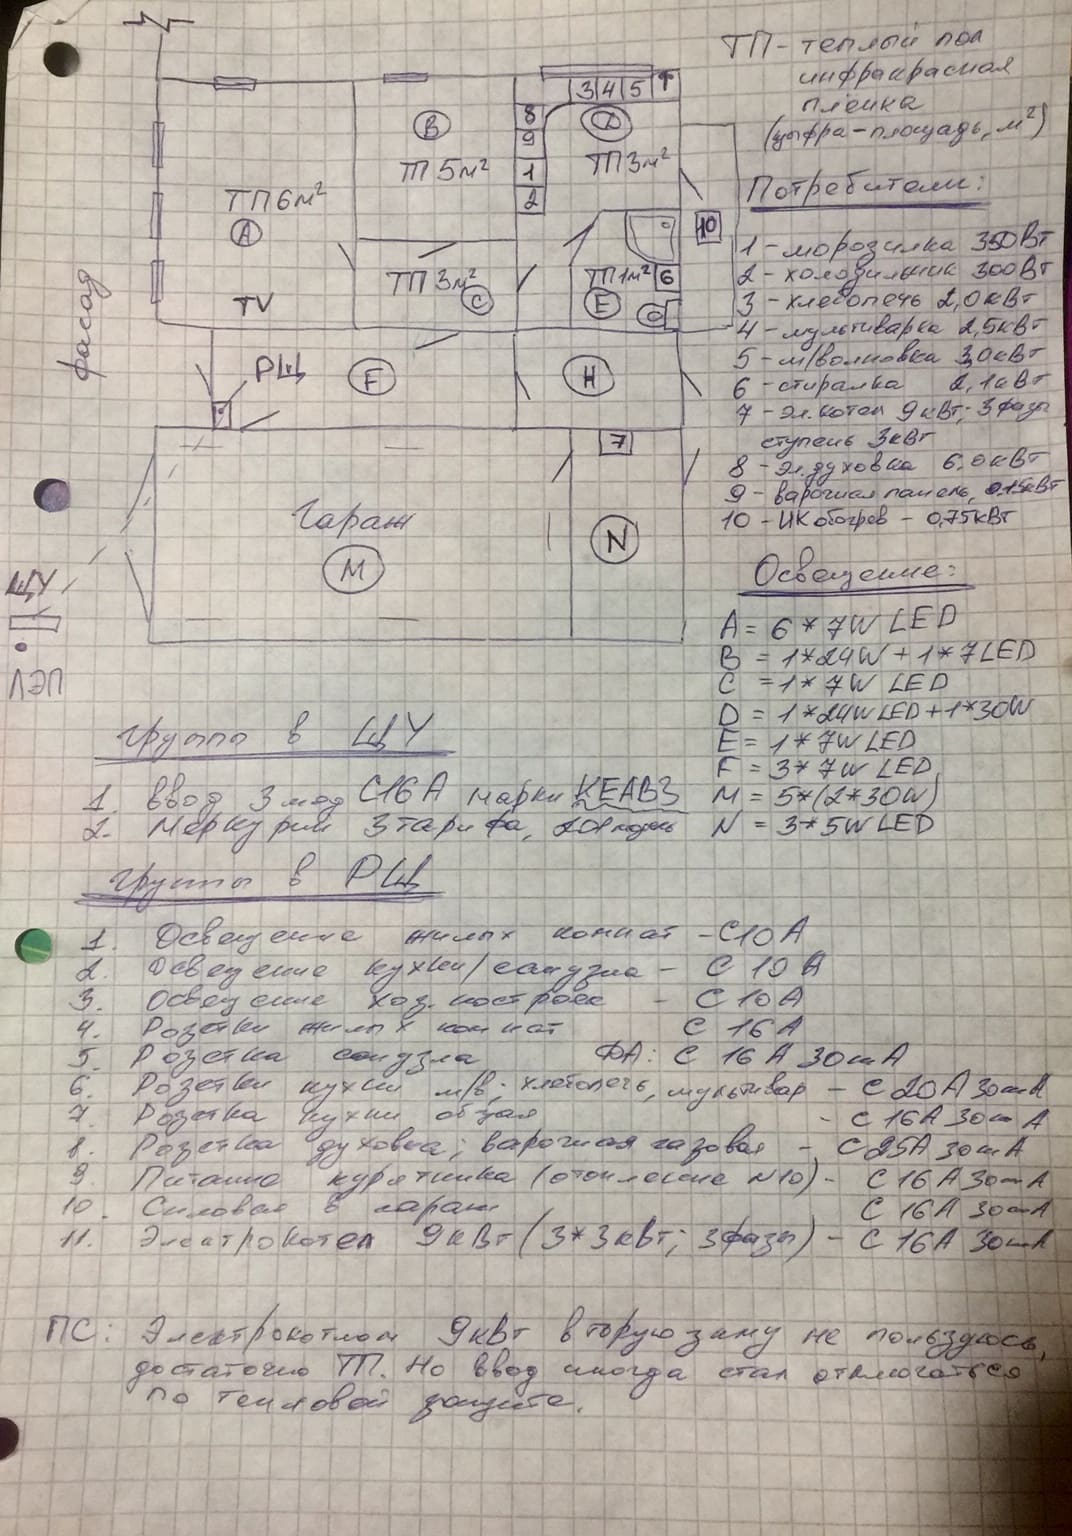 ТП - теплый пол
инфракрасная
пленка
(цыфра - площадь, м²)
3 4 5
8
9
1
2
B
D
ТП 5м²
ТП 3м²
ТП 6м²
A
10
ТП 3м²
C
ТП 1м² 6
E
TV
фасад
РЩ
F
H
7
Гараж
M
N
ЩУ
ЛЭП
Потребители:
1 - морозилка 350Вт
2 - холодильник 300Вт
3 - хлебопечь 2,0кВт
4 - мультиварка 2,5кВт
5 - м/волновка 3,0кВт
6 - стиралка 2,1кВт
7 - эл.котел 9кВт; 3фазы
ступень 3кВт
8 - эл.духовка 6,0кВт
9 - варочная панель, 0,15кВт
10 - ИК обогрев - 0,75кВт
Освещение:
A = 6*7W LED
B = 1*24W + 1*7LED
C = 1*7W LED
D = 1*24W LED + 1*30W
E = 1*7W LED
F = 3*7W LED
M = 5*(2*30W)
N = 3*5W LED
Группы в ЩУ
1. Ввод 3 мод C16A марки КЕАВЗ
2. Меркурий 3 тарифа, 201
Группы в РЩ
1. Освещение жилых комнат - C10A
2. Освещение кухни/санузла - C 10A
3. Освещение хоз. построек - C 10A
4. Розетки жилых комнат C 16A
5. Розетка санузла ФА: C 16A 30mA
6. Розетки кухни м/в; хлебопечь, мультивар - C 20A 30mA
7. Розетка кухни общая - C 16A 30mA
8. Розетка духовка; варочная газовая - C25A 30mA
9. Питание курятника (отопление N10) - C 16A 30mA
10. Силовая в гараж C 16A 30mA
11. Электрокотел 9кВт (3*3кВт; 3фазы) - C 16A 30mA
ПС: Электрокотлом 9кВт вторую зиму не пользуюсь,
достаточно ТП. Но ввод иногда стал отключаться
по тепловой защите.